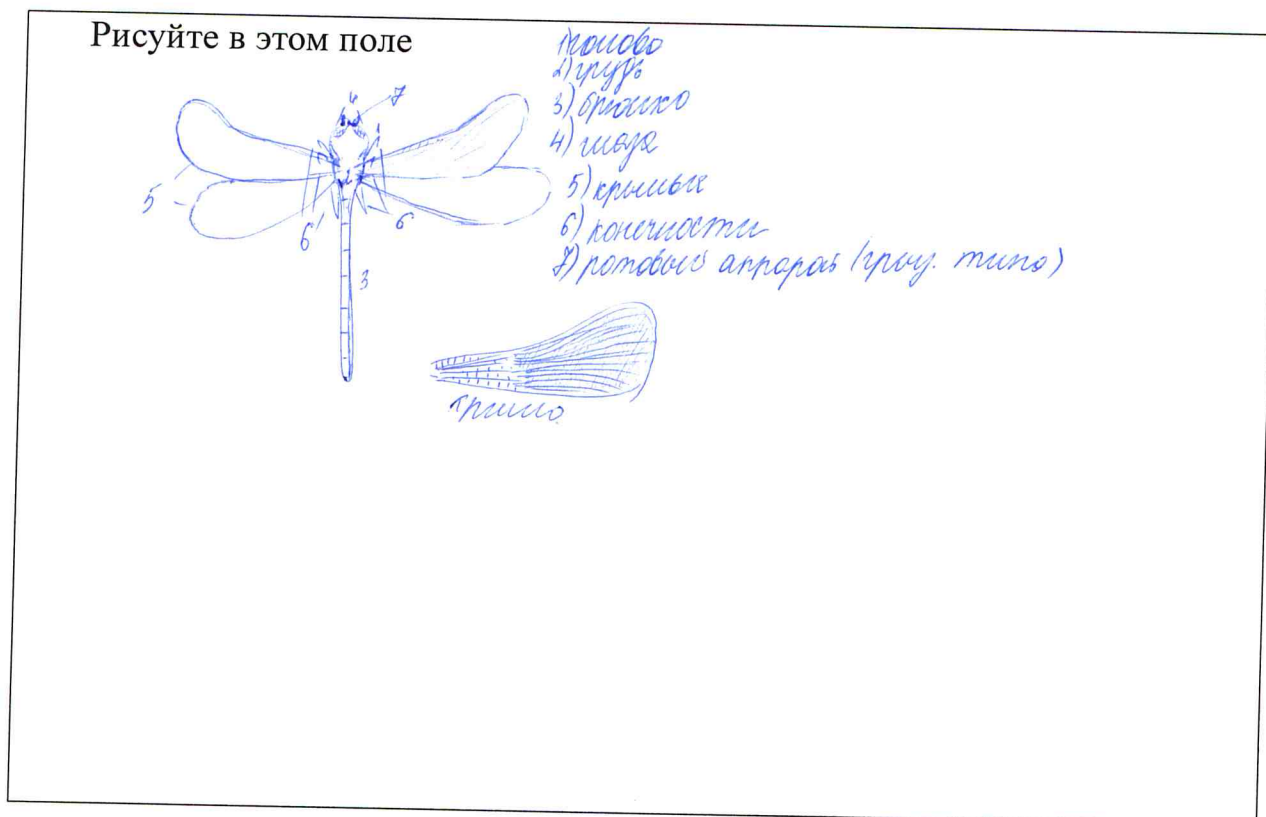 Рисуйте в этом поле
1) голова
2) грудь
3) брюшко
4) глаза
5) крылья
6) конечности
7) ротовый аппарат (грыз. типа)
4
7
1
2
5
6
6
3
крыло